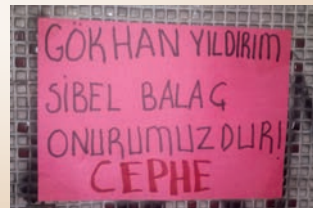 GÖKHAN YILDIRIM
SİBEL BALAÇ
ONURUMUZDUR!
CEPHE